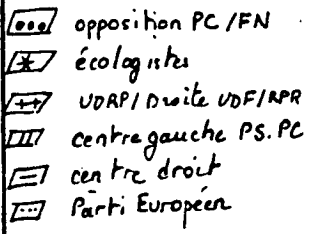 opposition PC/FN
écologistes
UDRP/Droite UDF/RPR
centre gauche PS.PC
centre droit
Parti Européen